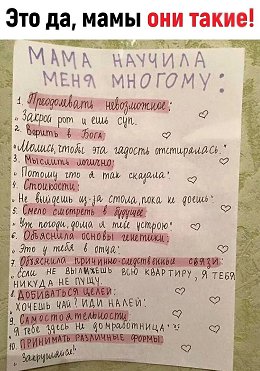 Это да, мамы они такие!
МАМА НАУЧИЛА
МЕНЯ МНОГОМУ:
1. Преодолевать невозможное:
„Закрой рот и ешь суп.
2. Верить в Бога
„Молись, чтобы эта гадость отстиралась."
3. Мыслить логично:
„Потому что я так сказала".
4. Стойкости:
„Не выйдешь из-за стола, пока не доешь".
5. Смело смотреть в будущее
„Уж погоди, дома я тебе устрою"
6. Объяснила основы генетики:
„Это у тебя в отца".
7. Объяснила причинно-следственные связи:
„Если не вылижешь всю квартиру, я тебя
никуда не пущу.
8. Добиваться целей:
„Хочешь чай? Иди налей".
9. Самостоятельности
„Я тебе здесь не домработница"
10. Принимать различные формы
„Закрушмане!"